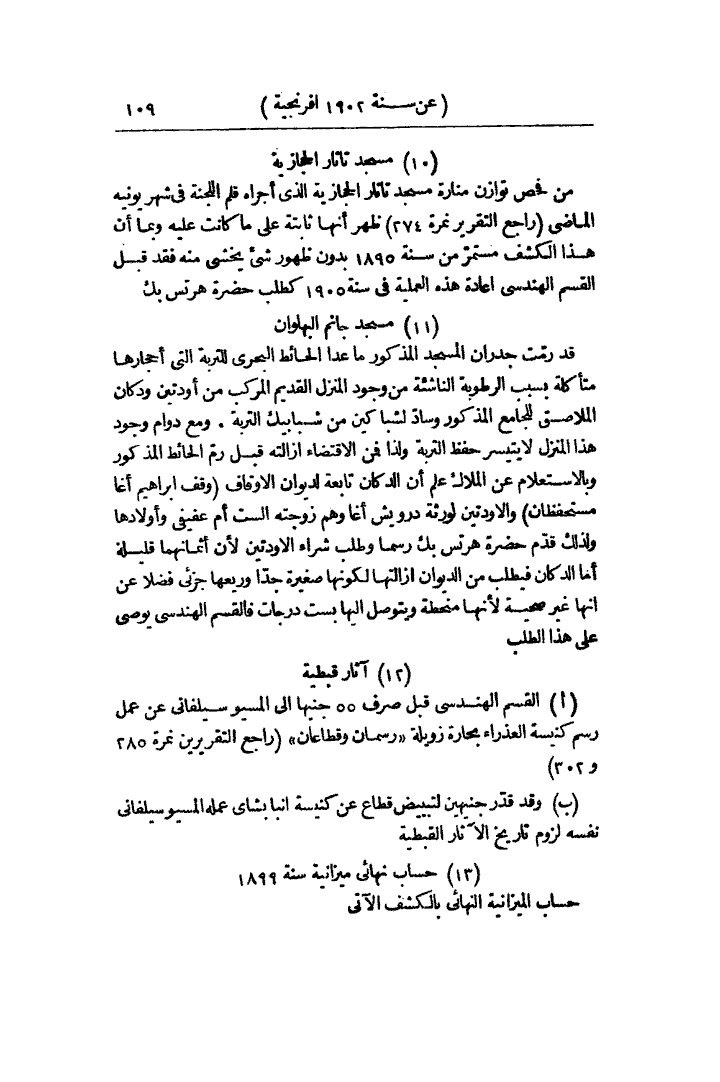 (عن سنة ١٩٠٢ افرنجية) ١٠٩
(١٠) مسجد تاتار الحجازية
من فحص توازن منارة مسجد تاتار الحجازية الذى أجراه قلم اللجنة فى شهر يونيه
الماضى (راجع التقرير نمرة ٢٧٤) ظهر أنها ثابتة على ما كانت عليه وبما أن
هذا الكشف مستمرّ من سنة ١٨٩٥ بدون ظهور شئ يخشى منه فقد قبل
القسم الهندسى اعادة هذه العملية فى سنة ١٩٠٥ كطلب حضرة هرتس بك
(١١) مسجد جانم البهلوان
قد رمّت جدران المسجد المذكور ما عدا الحائط البحرى للتربة التى أحجارها
متأكلة بسبب الرطوبة الناشئة من وجود المنزل القديم المركب من أودتين ودكان
الملاصق للجامع المذكور وسادّ لشباكين من شبابيك التربة . ومع دوام وجود
هذا المنزل لا يتيسر حفظ التربة ولذا فمن الاقتضاء ازالته قبل رمّ الحائط المذكور
وبالاستعلام عن الملاك علم أن الدكان تابعة لديوان الاوقاف (وقف ابراهيم أغا
مستحفظان) والاودتين لورثة درويش أغا وهم زوجته الست أم عفيفى وأولادها
ولذلك قدّم حضرة هرتس بك رسما وطلب شراء الاودتين لأن أثمانهما قليلة
أما الدكان فيطلب من الديوان ازالتها لكونها صغيرة جدّا وريعها جزئى فضلا عن
انها غير صحية لأنها منحطة ويتوصل اليها بست درجات فالقسم الهندسى يوصى
على هذا الطلب
(١٢) آثار قبطية
(أ) القسم الهندسى قبل صرف ٥٥ جنيها الى المسيو سيلفانى عن عمل
رسم كنيسة العذراء بحارة زويلة «رسمان وقطاعان» (راجع التقريرين نمرة ٢٨٥
و ٣٠٢)
(ب) وقد قدّر جنيهين لتبييض قطاع عن كنيسة انبا بشاى عمله المسيو سيلفانى
نفسه لزوم تاريخ الآثار القبطية
(١٣) حساب نهائى ميزانية سنة ١٨٩٩
حساب الميزانية النهائى بالكشف الآتى